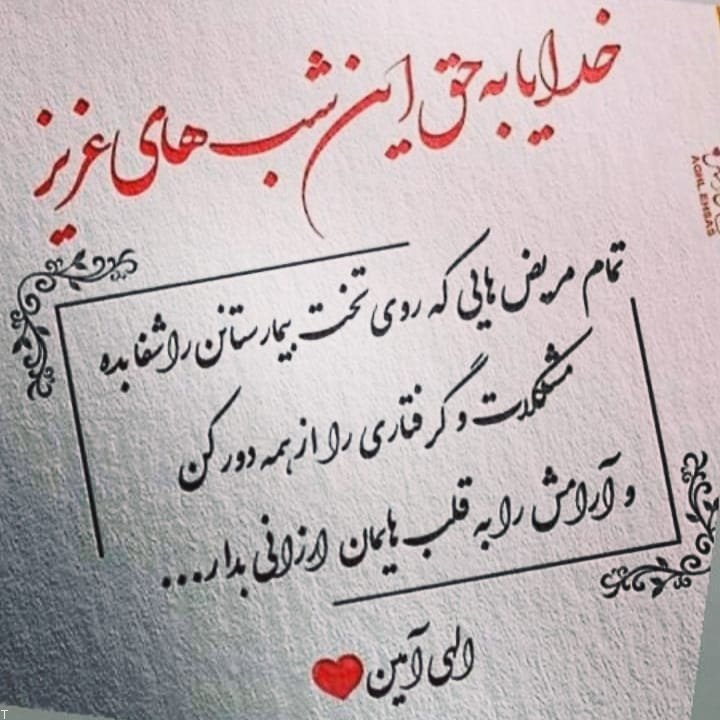 خدایا به حق این شب های عزیز
تمام مریض هایی که روی تخت بیمارستانن را شفا بده
مشکلات و گرفتاری را از همه دور کن
و آرامش را به قلب هایمان ارزانی بدار...
الهی آمین
AGHL EHSAS
T